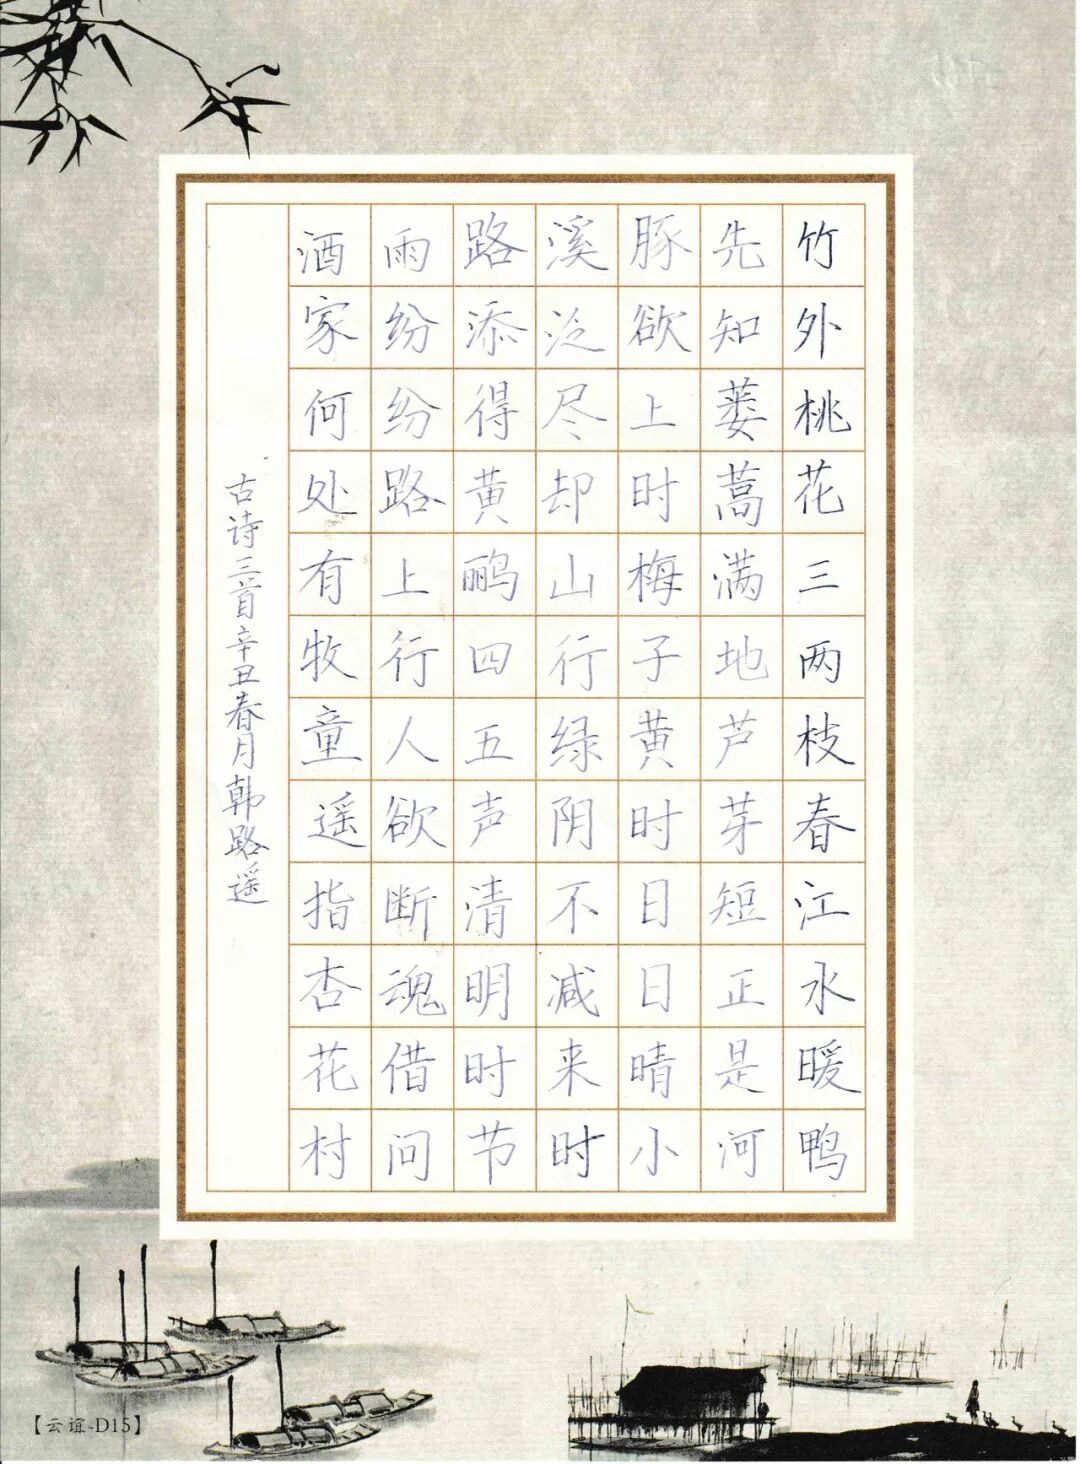 竹外桃花三两枝春江水暖鸭
先知蒌蒿满地芦芽短正是河
豚欲上时梅子黄时日日晴小
溪泛尽却山行绿阴不减来时
路添得黄鹂四五声清明时节
雨纷纷路上行人欲断魂借问
酒家何处有牧童遥指杏花村
古诗三首辛丑春月韩路遥
【云谊-D15】